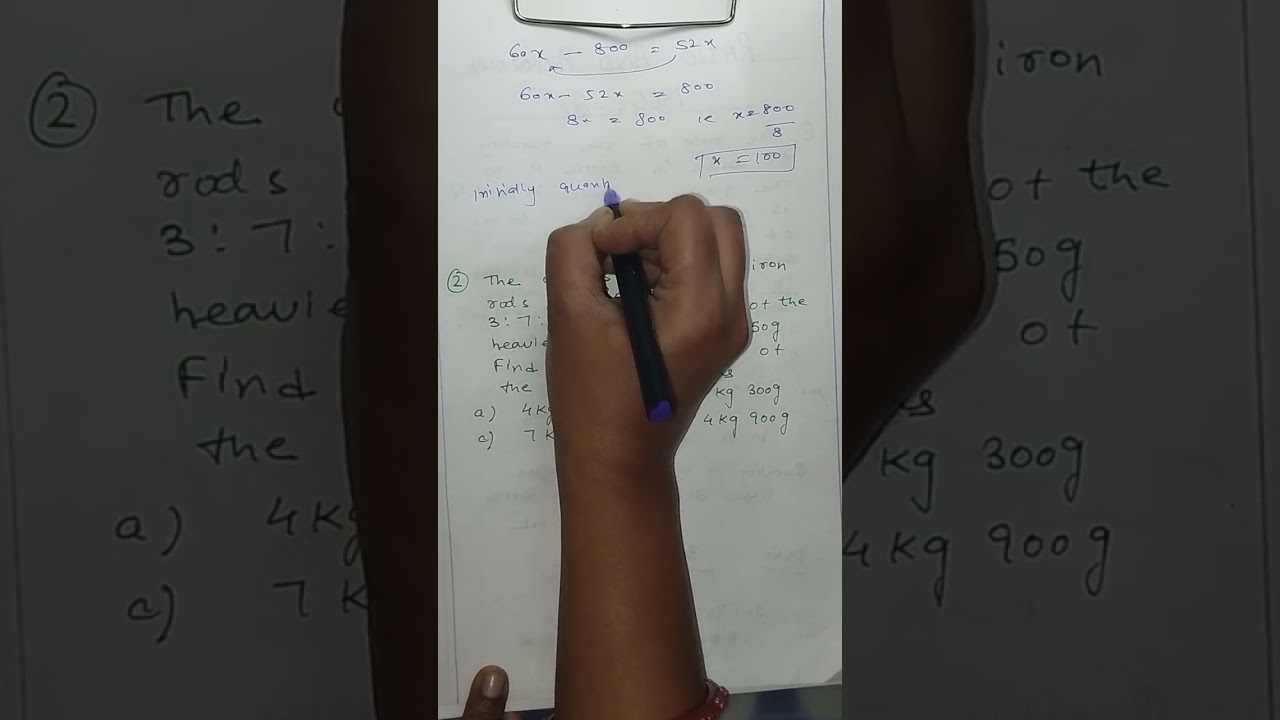 60x - 800 = 52x
60x - 52x = 800
8x = 800 ie x = 800
8
x = 100
Initially quant
② The iron
rods of the
3:7: 50g
heavie of
Find
the kg 300g
a) 4kg 4kg 900g
c) 7k